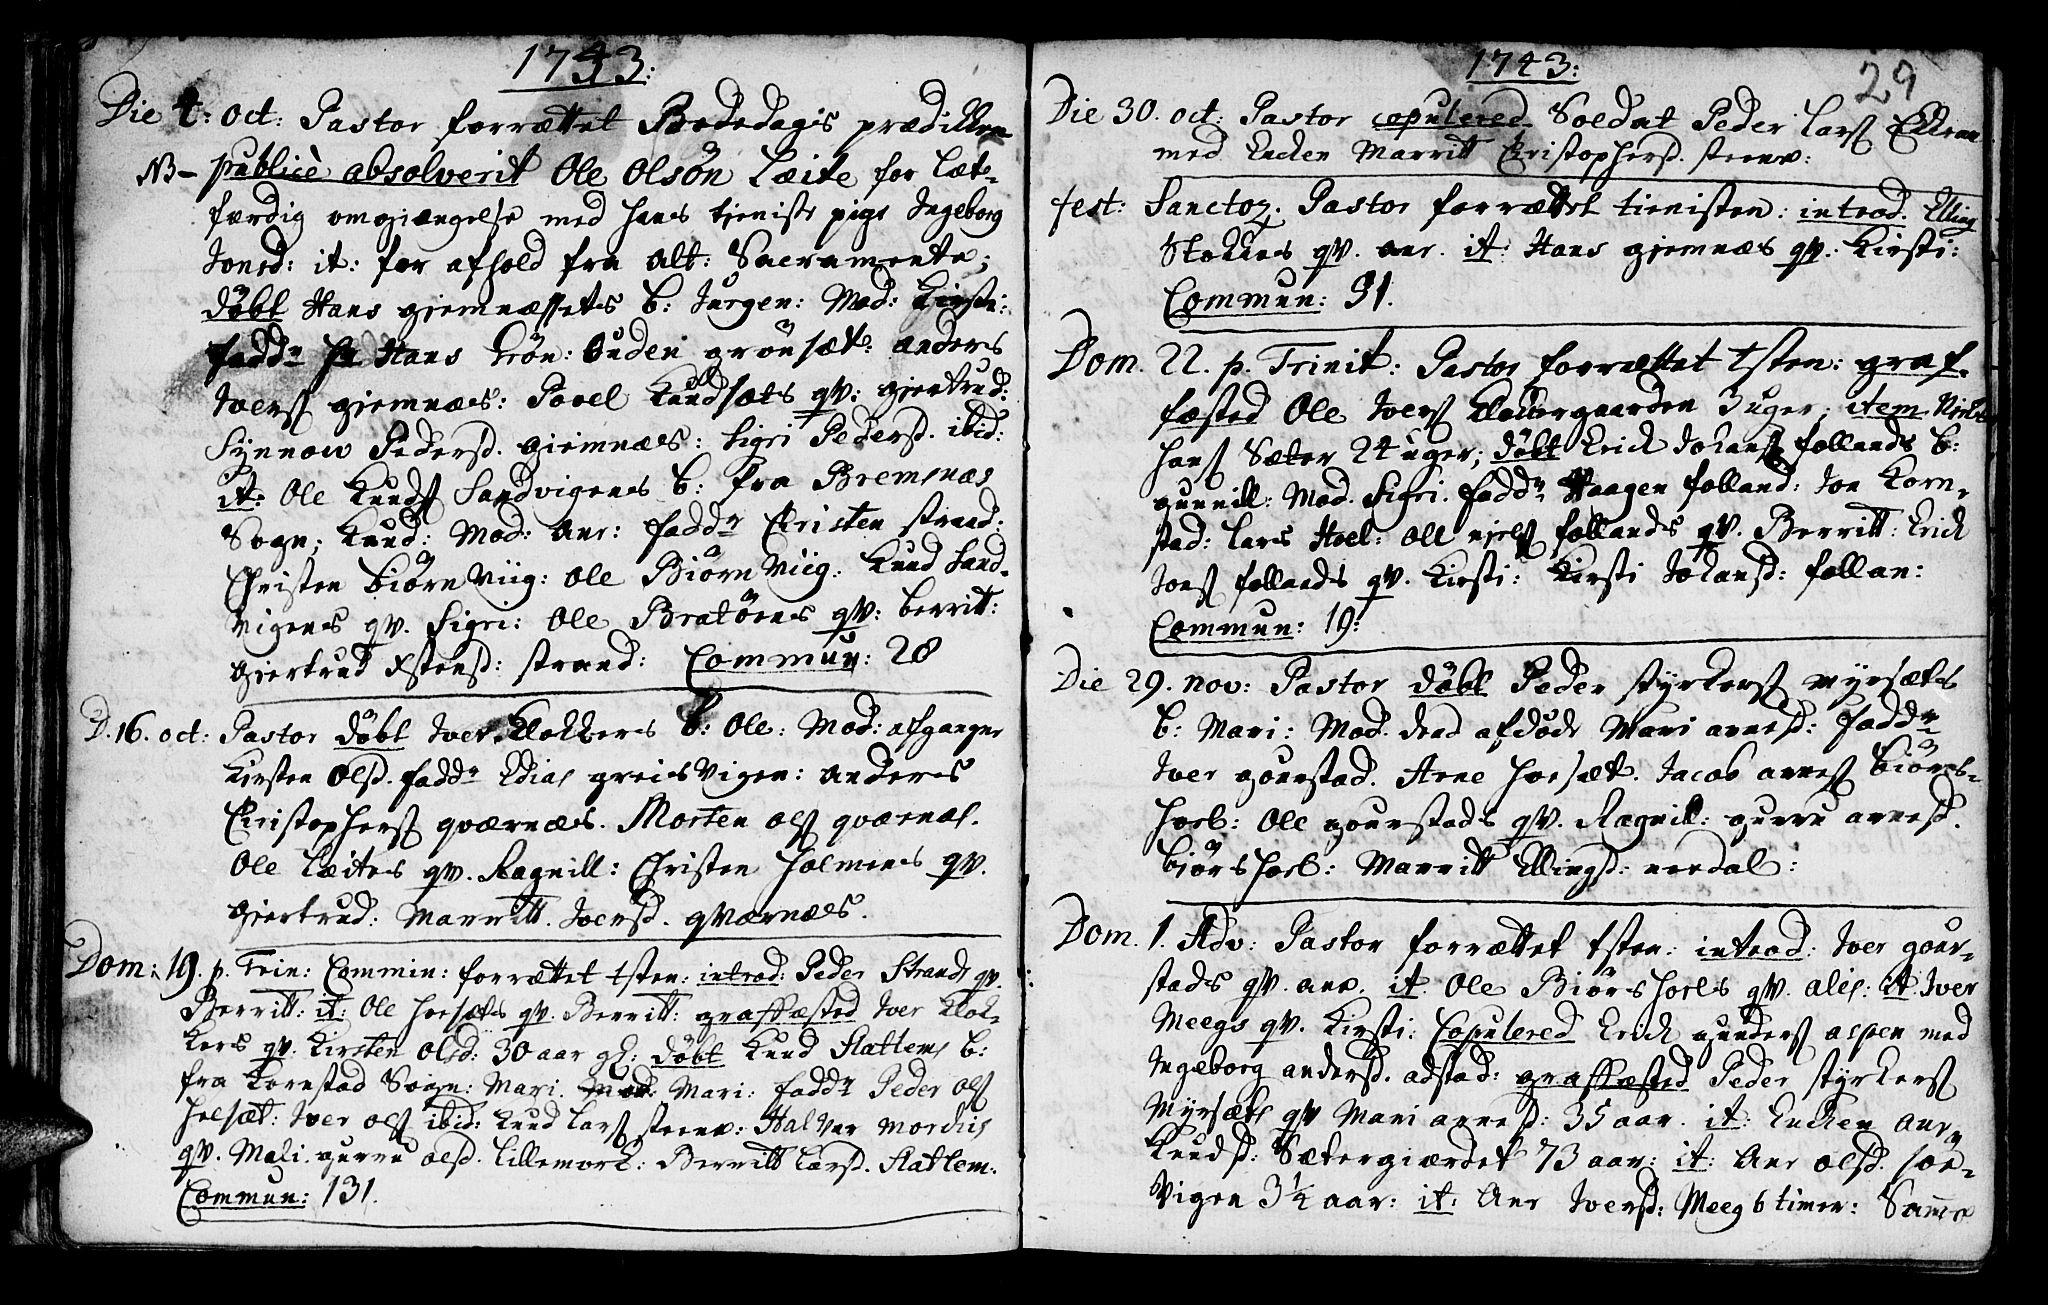 1743:
Die 4: oct: Pastor forrættet Bededags prædikken
NB – publicè absolverit Ole Olsøn Læite for læt-
færdig omgiængelse med hans tieniste pige Ingeborg
Jonsd: it: for afhold fra Alt: Sacramente;
døbt Hans giemnæssets b: Jurgen: Mod: Kirsti:
fadd. Hr Hans Crøn: Auden grønsæt: Anders
Ivers giemnæs: Povel Knudsæts qv: giertrud:
Synnow Pedersd. giemnæs: Sigri Pedersd. ibid:
it: Ole Knuds Sandvigens b: fra Bremsnæs
Sogn; Knud: Mod: Anr: fadd. Christen strand:
Christen BiørnViig: Ole BiørnViig: Knud Sand-
Vigens qv. Sigri: Ole Bratøens qv: berritt:
giertrud Estensd: strand: Commun: 28
D. 16. oct: Pastor døbt Iver Klokkers b: Ole: Mod: afgangne
Kirsten Olsd. fadd. Elias greisVigen: Anders
Christophers qværnæs. Morten Ols qværnæs.
Ole Læites qv. Ragnill: Christen Holmens qv.
giertrud: Marritt. Iversd. qværnæs.
Dom: 19. p. Trin: Commin: forrættet tsten: introd: Peder Strands qv.
Berritt: it: Ole Hoesæts qv. Berritt: graffæsted Iver Klok-
kers qv. Kirsten Olsd: 30 aar gl: døbt Knud Slattems b:
fra Kornstad Sogn: Mari. Mod: Mari: fadd. Peder Ols
Hoesæt: Iver Ols ibid: Knud Lars steenv: Halver Mordius
qv. Mali. gurru Olsd. Lillemork: Berritt Larsd. Slattem.
Commun: 131.
1743:
29
Die 30. oct: Pastor copulered Soldat Peder Lars
med Encken Marritt Christophersd. steenv:
fest: Sanctor. Pastor forrættet tienisten: introd. Elling
Stokkes qv. Anr. it: Hans giemnæs qv. Kirsti:
Commun: 91.
Dom. 22. p. Trinit: Pastor forrættet tsten: graf-
fæsted Ole Ivers Klokkergaarden 3 uger; item Niels
Hans Sæter 24 uger; døbt Erich Johans follands b:
gunnill: Mod. Sigri. fadd. Haagen folland: Jon Korn-
stad: Lars Hoel: Ole niels follands qv. Berritt: Erich
Jons follands qv. Kirsti: Kirsti Johansd: follan:
Commun: 19:
Die 29. nov: Pastor døbt Peder styrkers myrsæts
b: Mari: Mod. Mari arnesd: fadd.
Iver gourstad. Arne Hoesæt. Jacob arnes Biørs-
Hoel: Ole gourstads qv. Ragnill: gurru arnesd.
BiørsHoel: Marritt Ellingsd: nerdal:
Dom. 1. Adv: Pastor forrættet tsten: introd: Iver gour-
stads qv. Anr. it. Ole BiørsHoels qv. Ales: it. Iver
Meegs qv. Kirsti: Copulered Erich gunders aspen med
Ingeborg Andersd. adstad: graffæsted Peder styrkers
Myrsæts qv Mari arnesd: 35 aar. it: Encken Anr
Knudsd: Sætergiærdet 73 aar: it: Anr Olsd. Soe-
Vigen 3 1/4 aar: it: Anr Iversd: Meeg 6 timer: Samme